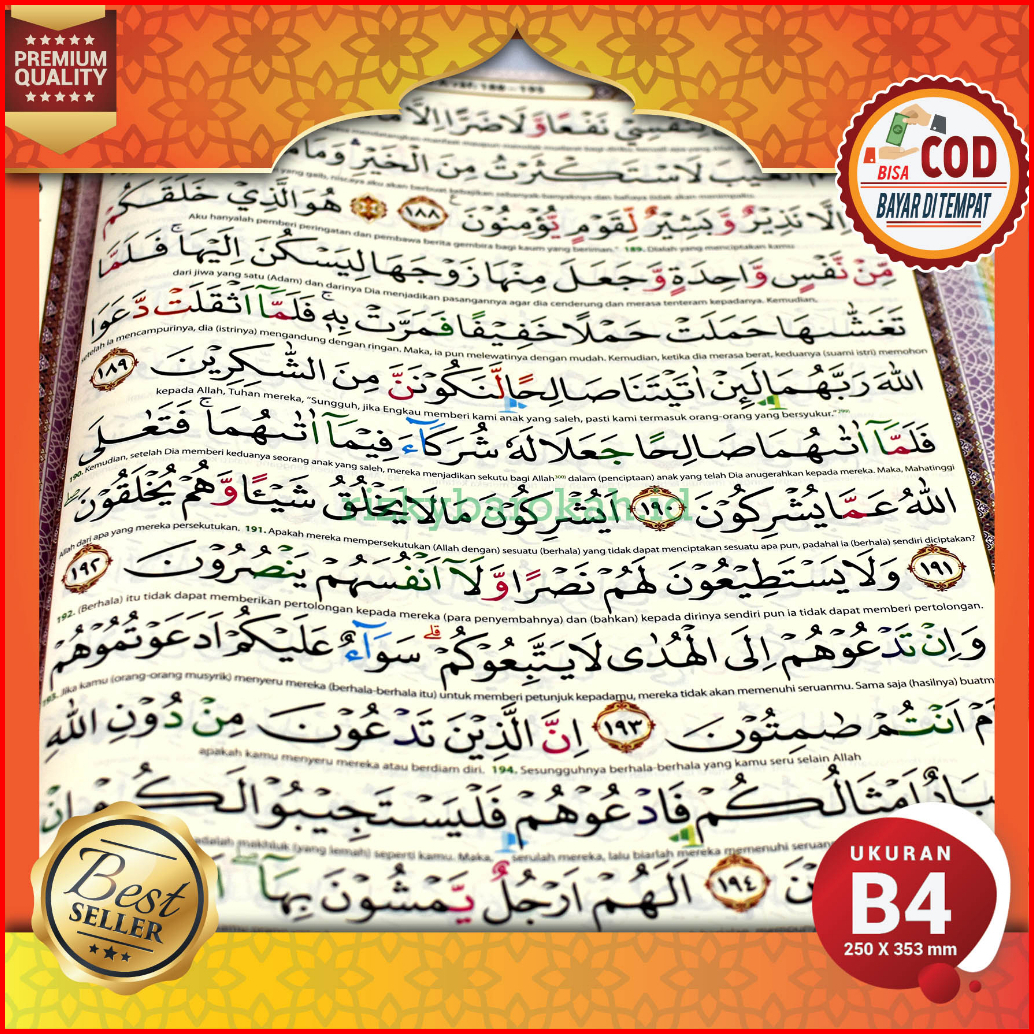 PREMIUM
QUALITY
BISA
COD
BAYAR DI TEMPAT
188 - 195
نَفْعًا وَّلَا ضَرًّا اِلَّا
لَاسْتَكْثَرْتُ مِنَ الْخَيْرِ وَمَا
اِلَّا نَذِيْرٌ وَّبَشِيْرٌ لِّقَوْمٍ يُّؤْمِنُوْنَ ١٨٨ هُوَ الَّذِيْ خَلَقَكُمْ
Aku hanyalah pemberi peringatan dan pembawa berita gembira bagi kaum yang beriman.” 189. Dialah yang menciptakan kamu
مِّنْ نَّفْسٍ وَّاحِدَةٍ وَّجَعَلَ مِنْهَا زَوْجَهَا لِيَسْكُنَ اِلَيْهَاۚ فَلَمَّا
dari jiwa yang satu (Adam) dan darinya Dia menjadikan pasangannya agar dia cenderung dan merasa tenteram kepadanya. Kemudian,
تَغَشّٰىهَا حَمَلَتْ حَمْلًا خَفِيْفًا فَمَرَّتْ بِهٖۚ فَلَمَّآ اَثْقَلَتْ دَّعَوَا
setelah ia mencampurinya, dia (istrinya) mengandung dengan ringan. Maka, ia pun melewatinya dengan mudah. Kemudian, ketika dia merasa berat, keduanya (suami istri) memohon
اللّٰهَ رَبَّهُمَا لَىِٕنْ اٰتَيْتَنَا صَالِحًا لَّنَكُوْنَنَّ مِنَ الشّٰكِرِيْنَ ١٨٩
kepada Allah, Tuhan mereka, “Sungguh, jika Engkau memberi kami anak yang saleh, pasti kami termasuk orang-orang yang bersyukur.”
فَلَمَّآ اٰتٰىهُمَا صَالِحًا جَعَلَا لَهٗ شُرَكَاۤءَ فِيْمَآ اٰتٰىهُمَاۚ فَتَعٰلَى
190. Kemudian, setelah Dia memberi keduanya seorang anak yang saleh, mereka menjadikan sekutu bagi Allah dalam (penciptaan) anak yang telah Dia anugerahkan kepada mereka. Maka, Mahatinggi
اللّٰهُ عَمَّا يُشْرِكُوْنَ ١٩٠ اَيُشْرِكُوْنَ مَا لَا يَخْلُقُ شَيْـًٔا وَّهُمْ يُخْلَقُوْنَۖ
rizky.barokah.id
Allah dari apa yang mereka persekutukan. 191. Apakah mereka mempersekutukan (Allah dengan) sesuatu (berhala) yang tidak dapat menciptakan sesuatu apa pun, padahal ia (berhala) sendiri diciptakan?
١٩١ وَلَا يَسْتَطِيْعُوْنَ لَهُمْ نَصْرًا وَّلَآ اَنْفُسَهُمْ يَنْصُرُوْنَ ١٩٢
192. (Berhala) itu tidak dapat memberikan pertolongan kepada mereka (para penyembahnya) dan (bahkan) kepada dirinya sendiri pun ia tidak dapat memberi pertolongan.
وَاِنْ تَدْعُوْهُمْ اِلَى الْهُدٰى لَا يَتَّبِعُوْكُمْۗ سَوَاۤءٌ عَلَيْكُمْ اَدَعَوْتُمُوْهُمْ
193. Jika kamu (orang-orang musyrik) menyeru mereka (berhala-berhala itu) untuk memberi petunjuk kepadamu, mereka tidak akan memenuhi seruanmu. Sama saja (hasilnya) buatm
اَمْ اَنْتُمْ صٰمِتُوْنَ ١٩٣ اِنَّ الَّذِيْنَ تَدْعُوْنَ مِنْ دُوْنِ اللّٰهِ
apakah kamu menyeru mereka atau berdiam diri. 194. Sesungguhnya berhala-berhala yang kamu seru selain Allah
عِبَادٌ اَمْثَالُكُمْ فَادْعُوْهُمْ فَلْيَسْتَجِيْبُوْا لَكُمْ اِنْ
adalah makhluk (yang lemah) seperti kamu. Maka, serulah mereka, lalu biarlah mereka memenuhi seruan
١٩٤ اَلَهُمْ اَرْجُلٌ يَّمْشُوْنَ بِهَآ
Best
SELLER
UKURAN
B4
250 X 353 mm